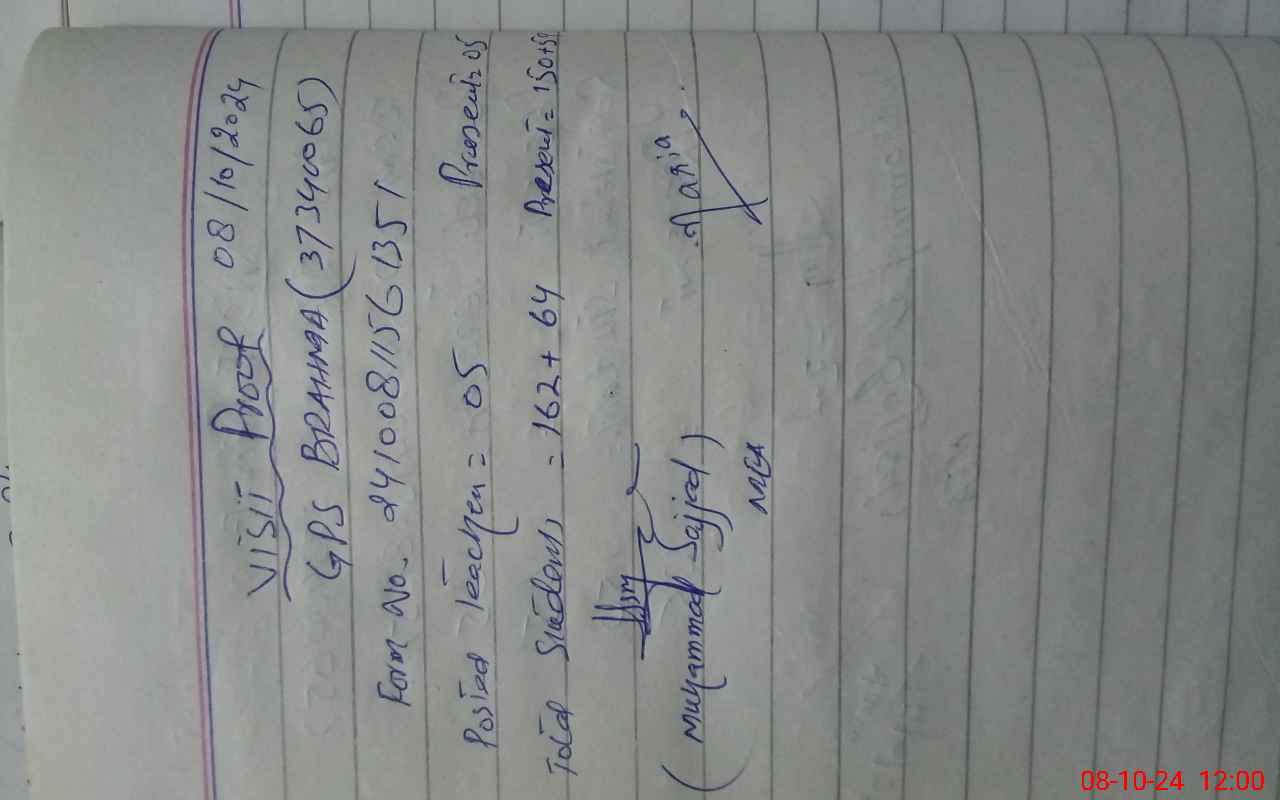 VISIT Proof 08/10/2024
GPS BRAHMA (37340065)
Form No. 24100811561351
Posted Teacher = 05 Present = 05
Total Students = 162 + 64 Present = 150+59
(Muhammad Sajjad)
MEA
08-10-24 12:00